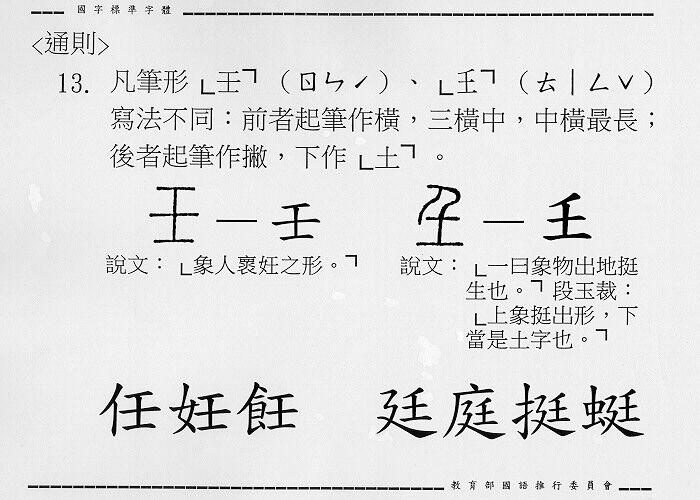 國字標準字體
<通則>
13. 凡筆形「壬」(ㄖㄣˊ)、「𡈼」(ㄊㄧㄥˇ)
寫法不同：前者起筆作橫，三橫中，中橫最長；
後者起筆作撇，下作「土」。
壬—壬 𡈼—𡈼
說文：「象人褢妊之形。」
說文：「一曰象物出地挺
生也。」段玉裁：
「上象挺出形，下
當是土字也。」
任妊飪 廷庭挺蜓
教育部國語推行委員會